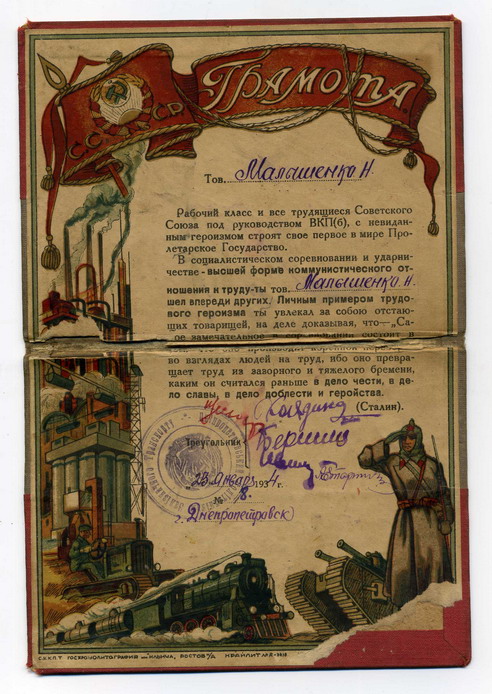 СССР
ГРАМОТА
Тов. Малышенко Н.
Рабочий класс и все трудящиеся Советского
Союза под руководством ВКП(б), с невидан-
ным героизмом строят свое первое в мире Про-
летарское Государство.
В социалистическом соревновании и ударни-
честве - высшей форме коммунистического от-
ношения к труду-ты тов. Малышенко Н.
шел впереди других. Личным примером трудо-
вого героизма ты увлекал за собою отстаю-
щих товарищей, на деле доказывая, что—„Са-
мое замечательное соревновании состоит в
том что оно производит коренной
во взглядах людей на труд, ибо оно превра-
щает труд из зазорного и тяжелого бремени,
каким он считался раньше в дело чести, в де-
ло славы, в дело доблести и геройства.
(Сталин).
Треугольник
23 января 1934 г.
№ 8.
г. Днепропетровск